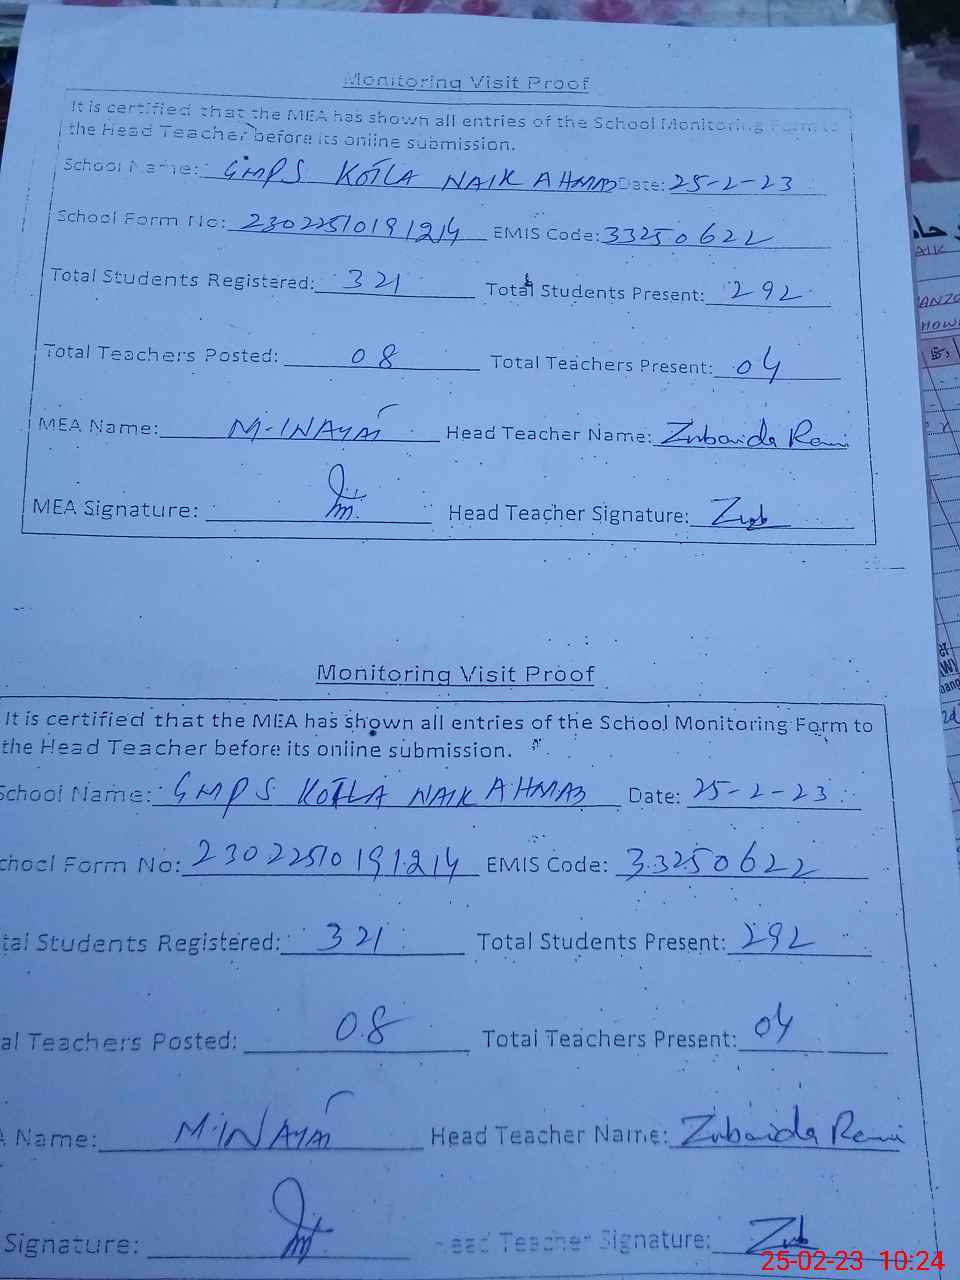 Monitoring Visit Proof
It is certified that the MEA has shown all entries of the School Monitoring Form to
the Head Teacher before its online submission.
School Name: GMPS KOTLA NAIK AHMAD Date: 25-2-23
School Form No: 23022510191214 EMIS Code: 33250622
Total Students Registered: 321 Total Students Present: 292
Total Teachers Posted: 08 Total Teachers Present: 04
MEA Name: M-INAYAT Head Teacher Name: Zubaida Rani
MEA Signature: Head Teacher Signature: Zub
Monitoring Visit Proof
It is certified that the MEA has shown all entries of the School Monitoring Form to
the Head Teacher before its online submission.
School Name: GMPS KOTLA NAIK AHMAD Date: 25-2-23
chool Form No: 23022510191214 EMIS Code: 33250622
tal Students Registered: 321 Total Students Present: 292
al Teachers Posted: 08 Total Teachers Present: 04
A Name: M-INAYAT Head Teacher Name: Zubaida Rani
Signature: Head Teacher Signature: Zub
25-02-23 10:24